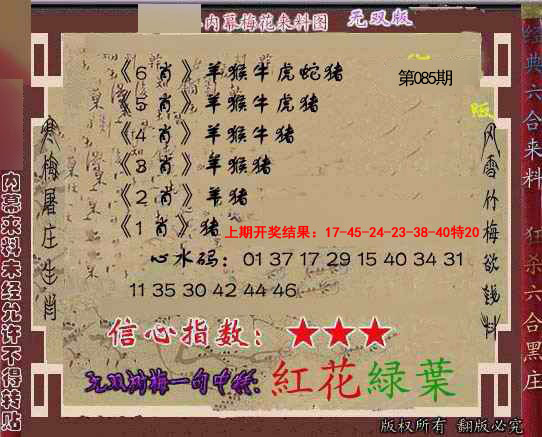 内幕梅花来料图 无双版
第085期
《6 肖》羊猴牛虎蛇猪
《5 肖》羊猴牛虎猪
《4 肖》羊猴牛猪
《3 肖》羊猴猪
《2 肖》羊猪
《1 肖》猪
上期开奖结果：17-45-24-23-38-40特20
心水码：01 37 17 29 15 40 34 31
11 35 30 42 44 46
信心指数：★★★
无双刘梅一句中特：紅花緑葉
版权所有 翻版必究
寒梅屠庄生肖
风雪竹梅欲钱料
内幕来料未经允许不得转贴
经典六合来料 狂杀六合黑庄
版